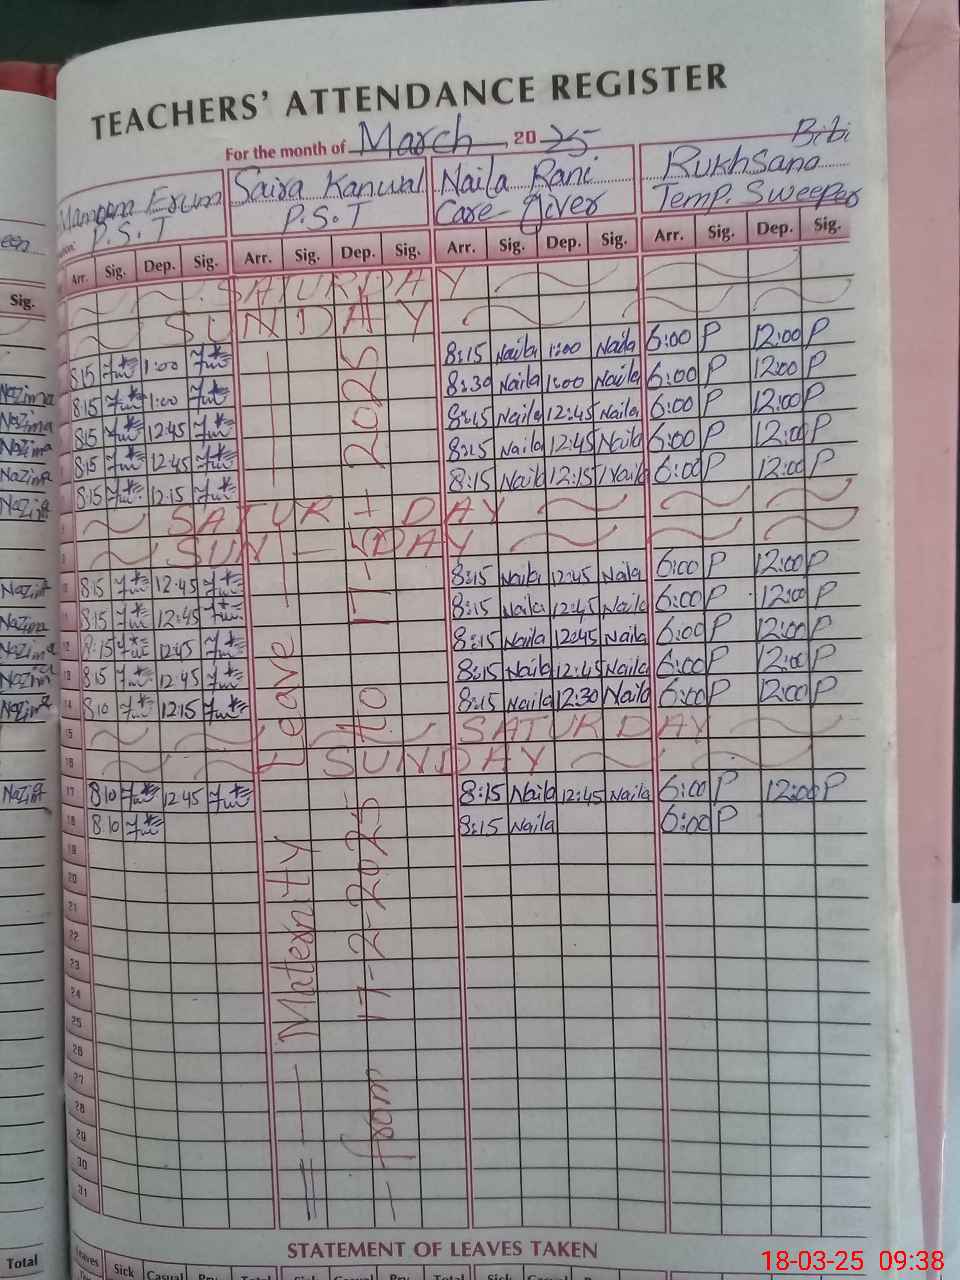 TEACHERS' ATTENDANCE REGISTER
For the month of March, 2025
Erum Saira Kanwal Naila Rani Rukhsana Bibi
P.S.T P.S.T Care-giver Temp. Sweeper
Arr. Sig. Dep. Sig. Arr. Sig. Dep. Sig. Arr. Sig. Dep. Sig. Arr. Sig. Dep. Sig.
SATURDAY
SUNDAY
8:15 1:00 8:15 Naila 1:00 Naila 6:00 P 12:00 P
8:15 1:00 8:30 Naila 1:00 Naila 6:00 P 12:00 P
8:15 12:45 8:15 Naila 12:45 Naila 6:00 P 12:00 P
8:15 12:45 8:15 Naila 12:45 Naila 6:00 P 12:00 P
8:15 12:15 8:15 Naila 12:15 Naila 6:00 P 12:00 P
SATURDAY
SUNDAY
10 8:15 12:45 8:15 Naila 12:45 Naila 6:00 P 12:00 P
8:15 12:45 8:15 Naila 12:45 Naila 6:00 P 12:00 P
12 8:15 12:45 8:15 Naila 12:45 Naila 6:00 P 12:00 P
13 8:15 12:45 8:15 Naila 12:45 Naila 6:00 P 12:00 P
14 8:10 12:15 8:15 Naila 12:30 Naila 6:00 P 12:00 P
15 SATURDAY
16 SUNDAY
17 8:10 12:45 8:15 Naila 12:45 Naila 6:00 P 12:00 P
18 8:10 8:15 Naila 6:00 P
19
20
21
22
23
24
25
26
27
28
29
30
31
Maternity Leave
from 17-2-2025 to 17-5-2025
STATEMENT OF LEAVES TAKEN
Leaves Sick Casual Prv. Total Sick Casual Prv. Total Sick Casual
Sig.
Nazima
Nazima
Nazima
Nazima
Nazima
Nazima
Nazima
Nazima
Nazima
Nazima
Nazima
Total
18-03-25 09:38